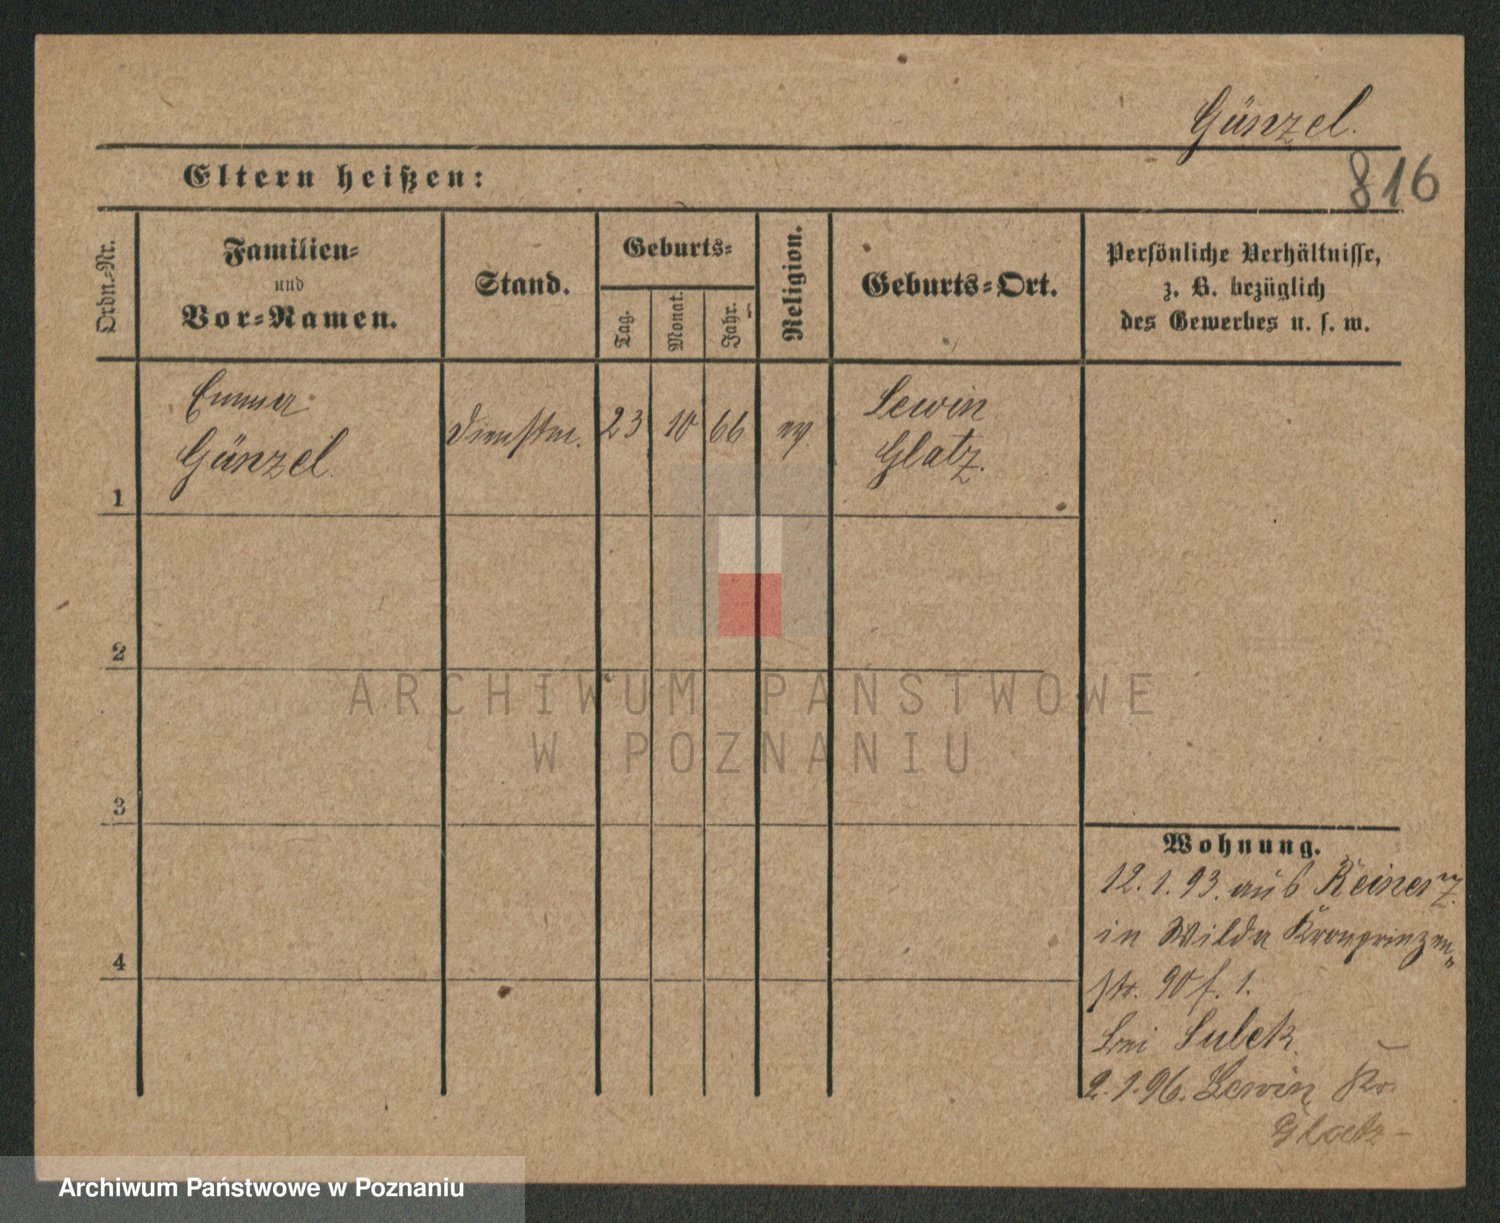 Günzel.
816
Eltern heißen:
Ordn.-Nr.
Familien-
und
Vor-Namen.
Stand.
Geburts-
Tag.
Monat.
Jahr.
Religion.
Geburts-Ort.
Persönliche Verhältnisse,
z. B. bezüglich
des Gewerbes u. s. w.
1
Emma
Günzel.
Dienstm.
23
10
66
ev.
Lewin
Glatz.
2
3
4
Wohnung.
12. 1. 93. aus Reinerz
in Wilda Kronprinzen„
str. 90 f. 1.
bei Lubek.
2. 1. 96. Lewin Kr.
Glatz -
ARCHIWUM PAŃSTWOWE
W POZNANIU
Archiwum Państwowe w Poznaniu